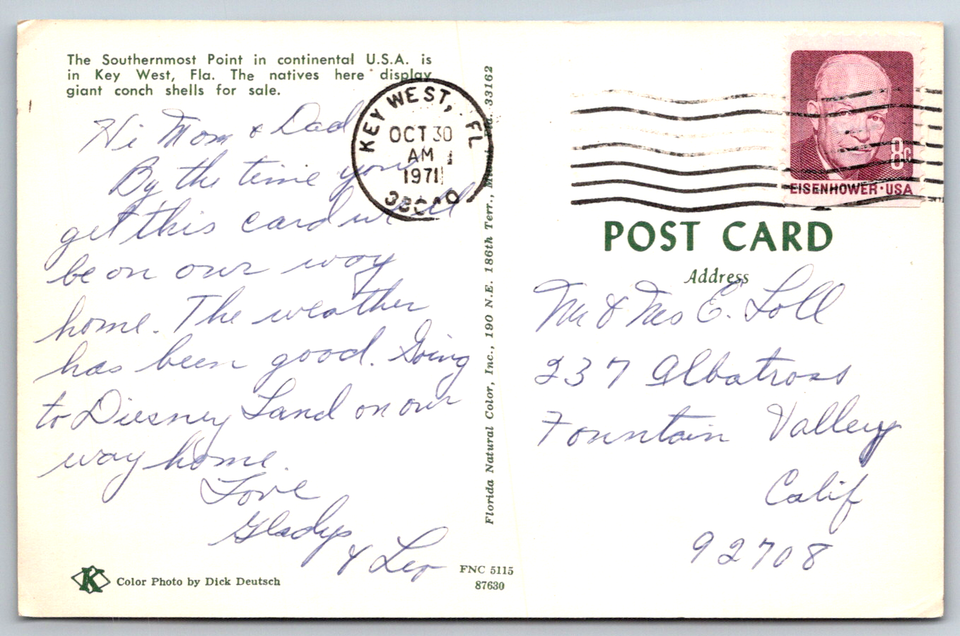 The Southernmost Point in continental U.S.A. is
in Key West, Fla. The natives here display
giant conch shells for sale.
Hi Mom & Dad
By the time you
get this card we'll
be on our way
home. The weather
has been good. Going
to Diesney Land on our
way home.
Love
Gladys
& Leo
Color Photo by Dick Deutsch
K
Florida Natural Color, Inc., 190 N.E. 186th Terr., 33162
FNC 5115
87630
KEY WEST, FL
OCT 30
AM
1971
EISENHOWER·USA
8c
POST CARD
Address
Mr & Mrs E. Loll
237 Albatross
Fountain Valley
Calif
92708